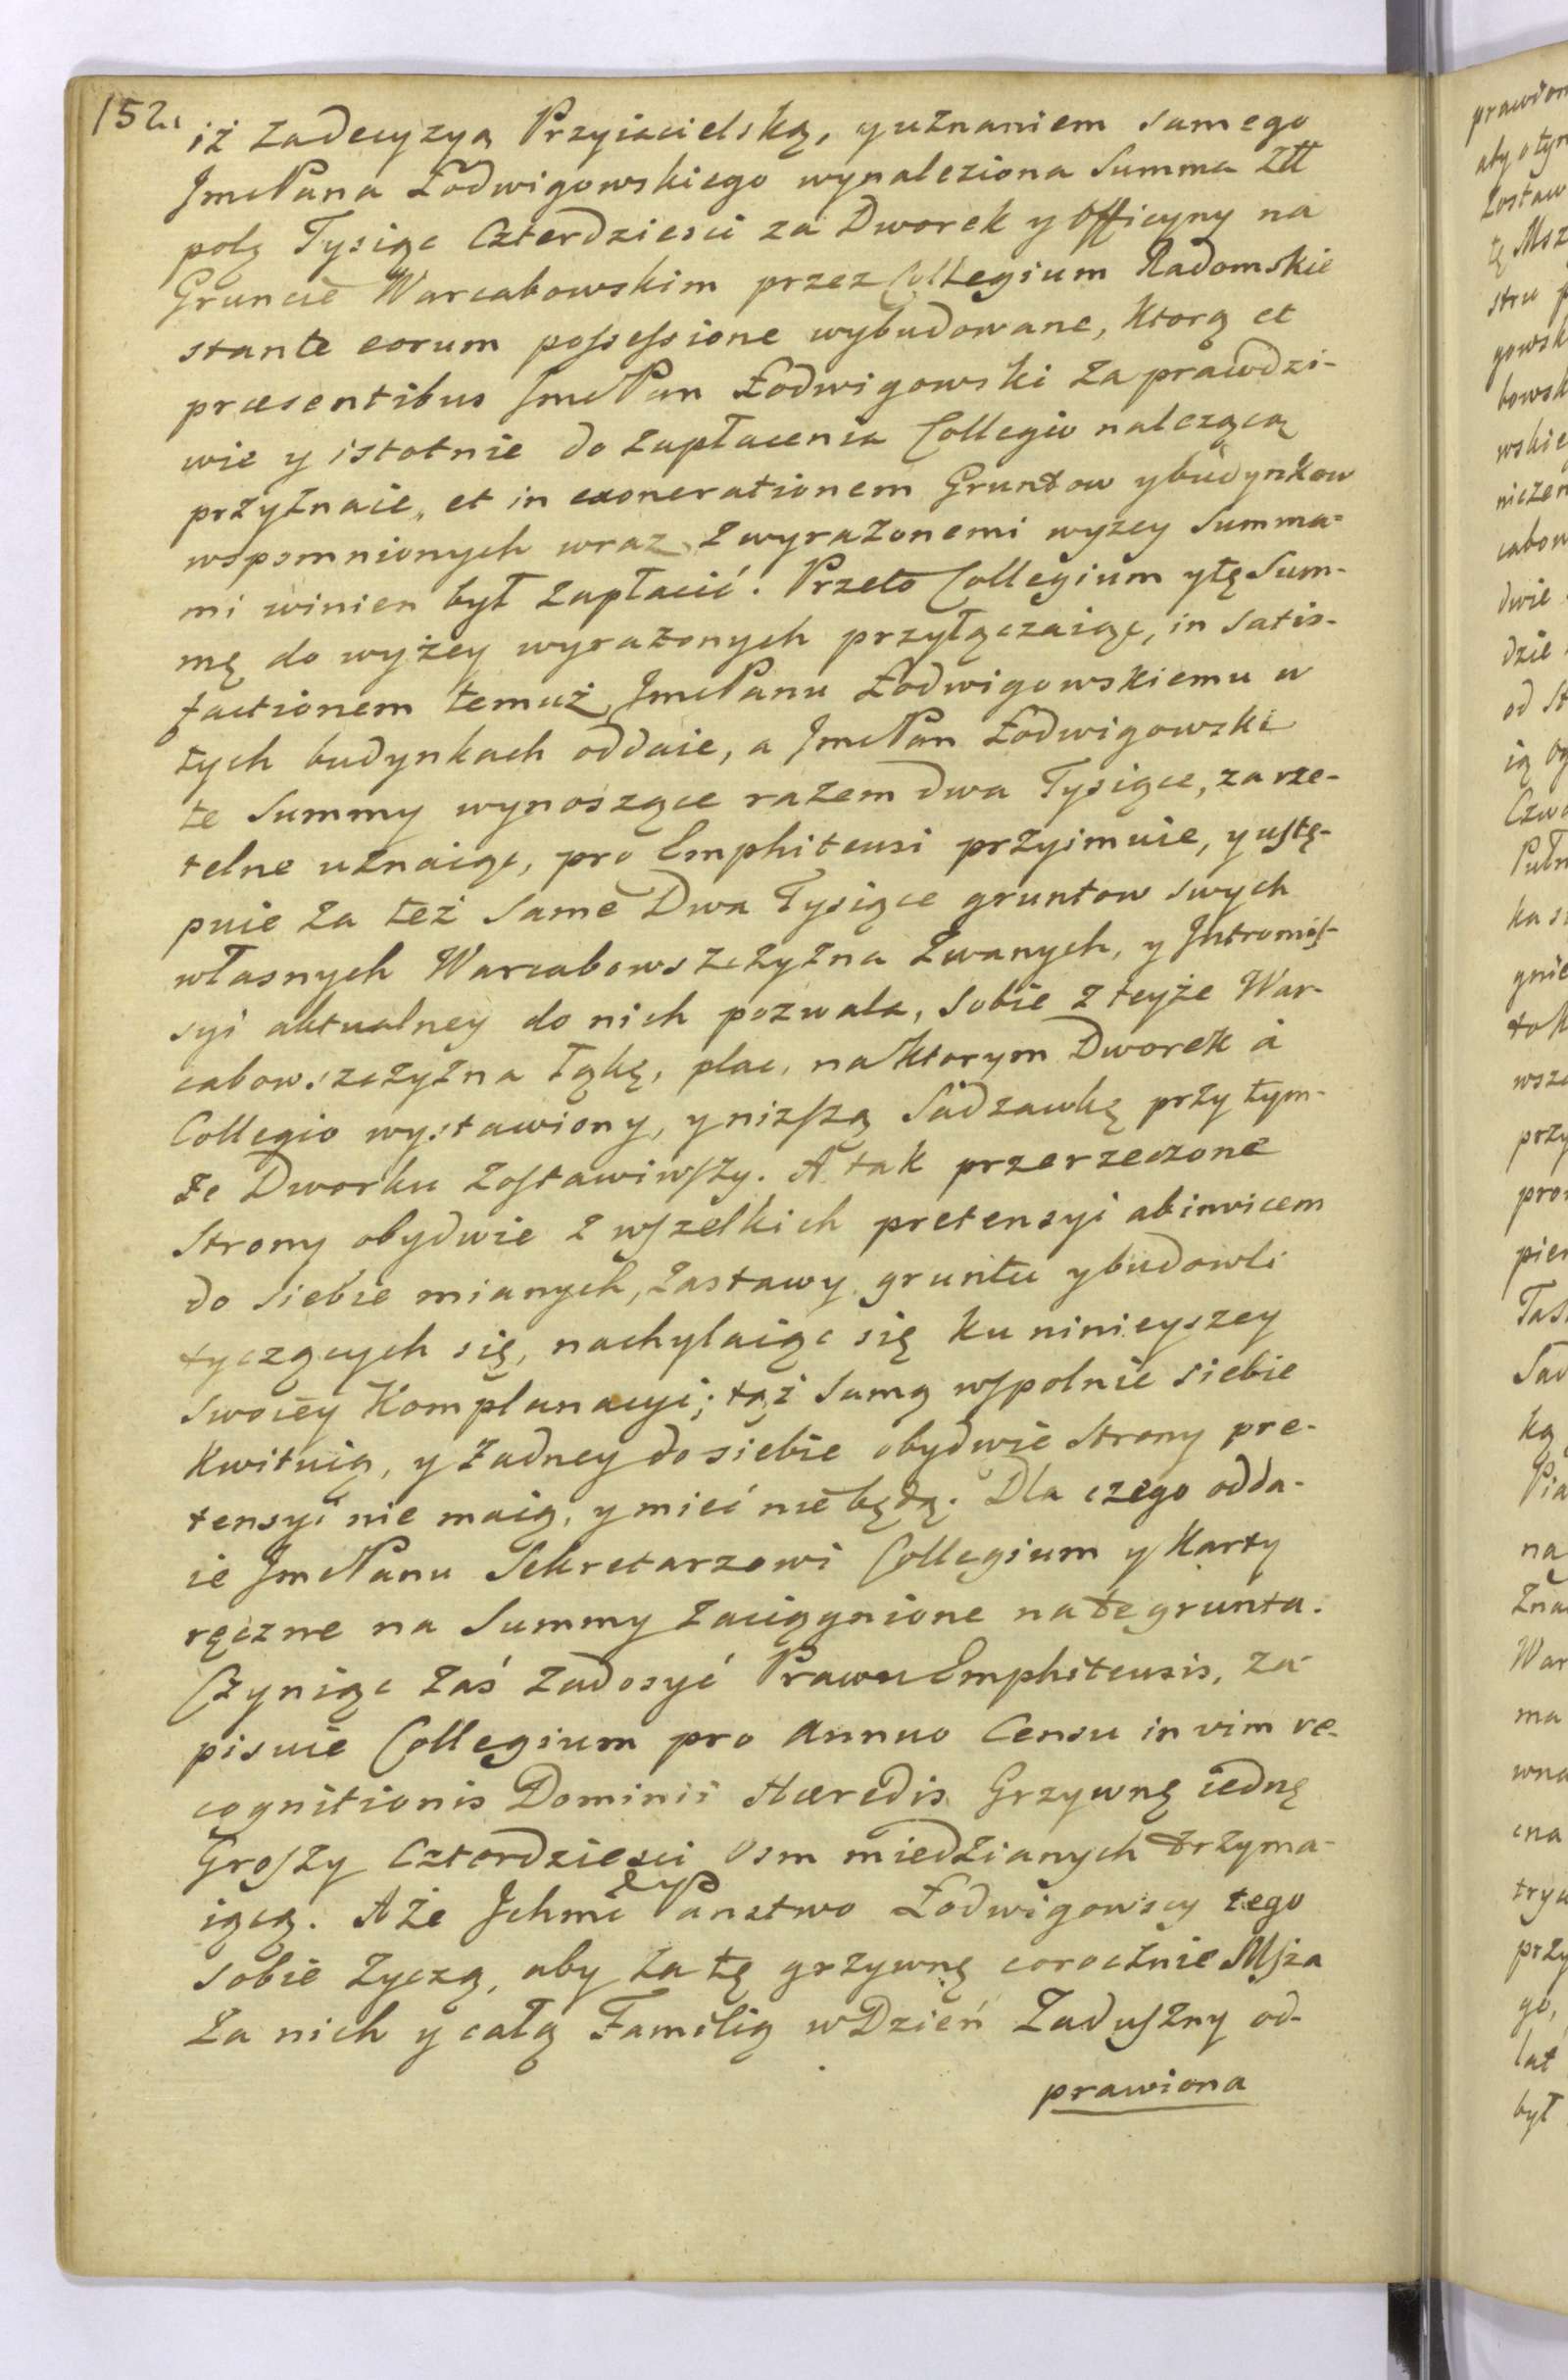 152.
iż za decyzyą Przyiacielską, y uznaniem samego
Jmć Pana Łodwigowskiego wynaleziona Summa Złł
polg Tysiąc Czterdziesci za Dworek y Officyny na
Gruncie Warcabowskim przez Collegium Radomskie
stante eorum possessione wybudowane, ktorą et
præsentibus Jmć Pan Łodwigowski za prawdzi-
wie y istotnie do zapłacenia Collegio należącą
przyznaie, et in exonerationem Gruntow y budynkow
wspomnionych wraz z wyrażonemi wyzey Summa-
mi winien był zapłacić. Przeto Collegium y tę Sum-
mę do wyżey wyrażonych przyłączaiąc, in satis-
factionem temuż Jmć Panu Łodwigowskiemu w
tych budynkach oddaie, a Jmć Pan Łodwigowski
te Summy wynoszące razem dwa Tysiące, za rze-
telne uznaiąc, pro Emphiteusi przyimuie, y ustę-
puie za też same Dwa Tysiące gruntow swych
własnych Warcabowszczyzna zwanych, y Intromis-
syi aktualney do nich pozwala, sobie z teyże War-
cabowszczyzna łąkę, plac, na ktorym Dworek à
Collegio wystawiony, y nizszą Sadzawkę przy tym-
że Dworku zostawiwszy. A tak przerzeczone
Strony obydwie z wszelkich pretensyi abinvicem
do siebie mianych, zastawy gruntu y budowli
tyczących się, nachylaiąc się ku ninieyszey
swoiey Komplanacyi; tąż samą wspolnie siebie
kwituią, y żadney do siebie obydwie strony pre-
tensyi nie maią, y mieć nie będą. Dla czego odda-
ie Jmć Panu Sekretarzowi Collegium y Karty
ręczne na Summy zaciągnione na te grunta.
Czyniąc zaś zadosyć Prawu Emphiteusis, za-
pisuie Collegium pro annuo Censu in vim re-
cognitionis Dominii Hæredis Grzywnę iednę
Groszy Czterdziesci Osm miedzianych trzyma-
iącą. A że Ichmć Panstwo Łodwigowscy tego
sobie życzą, aby za tę grzywnę corocznie Msza
za nich y całą Familią w Dzień Zaduszny od-
prawiona